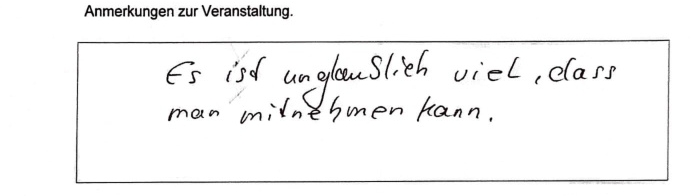 Anmerkungen zur Veranstaltung.
Es ist unglaublich viel, dass
man mitnehmen kann.